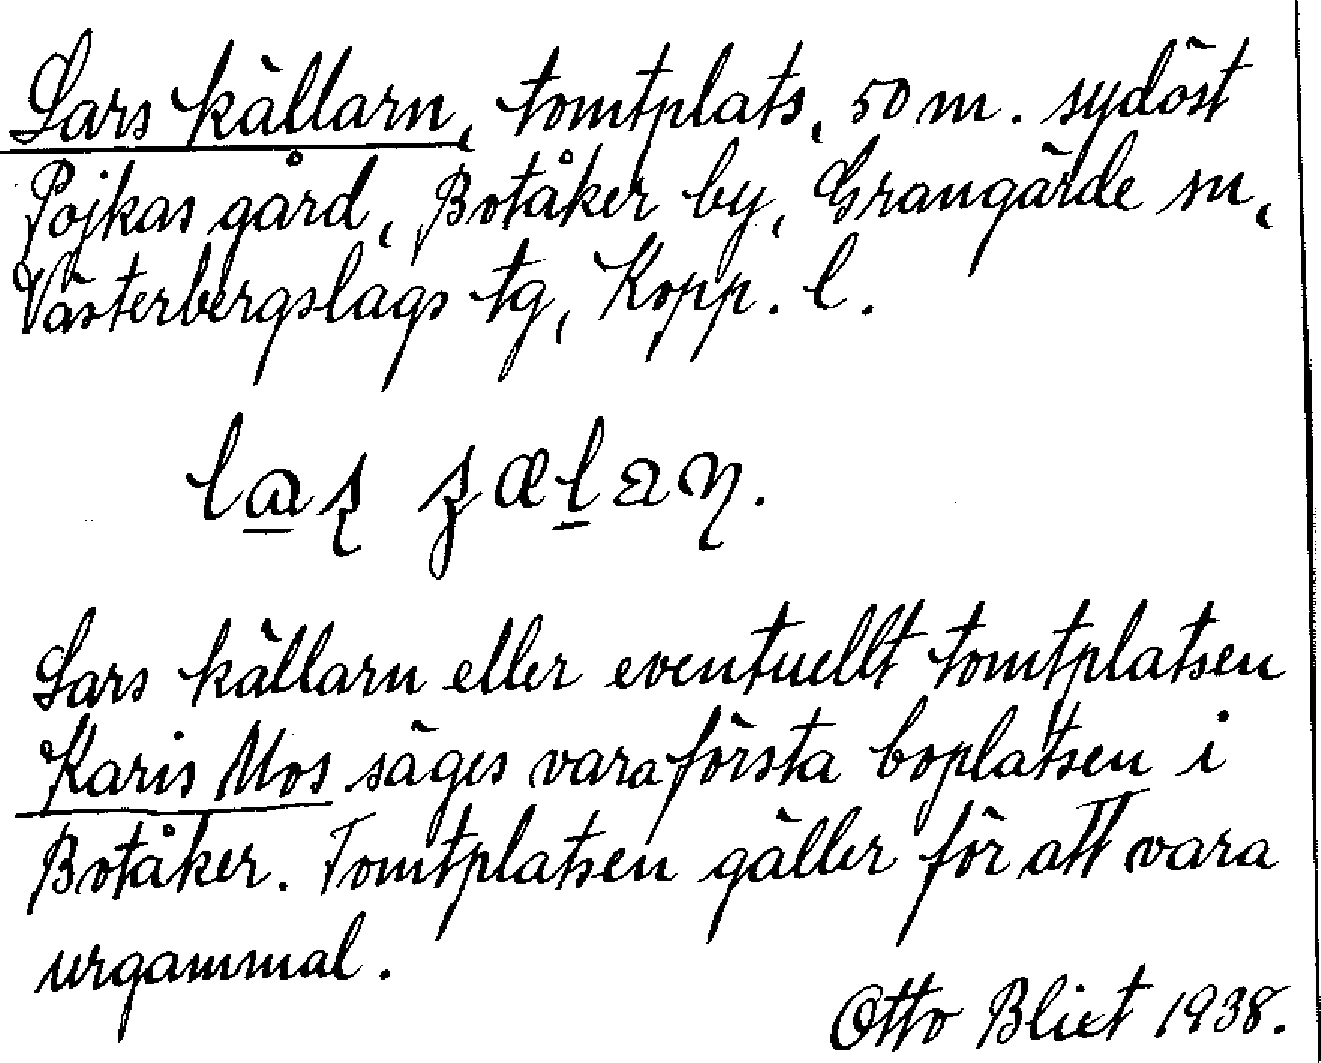 Lars källarn, tomtplats, 50 m. sydöst
Pojkas gård, Botåker by, Grangärde sn,
Västerbergslags tg, Kopp. l.
Lars källarn eller eventuellt tomtplatsen
Karis Mos säges vara första boplatsen i
Botåker. Tomtplatsen gäller för att vara
urgammal.
Otto Blixt 1938.